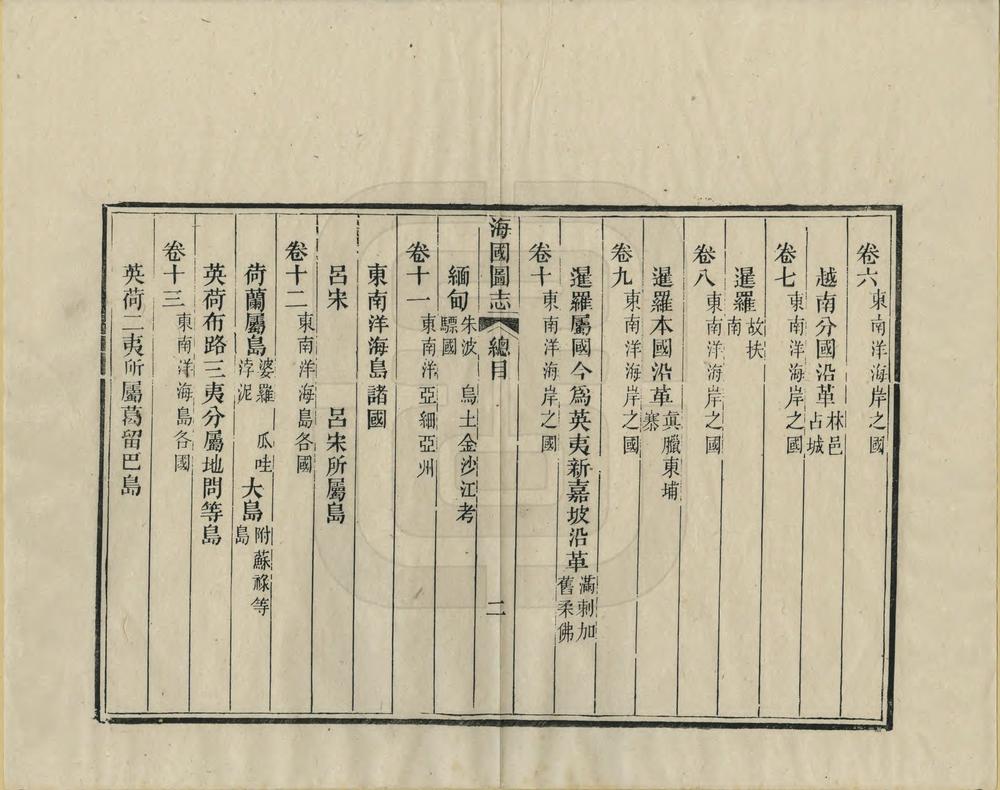 卷六 東南洋海岸之國
越南分國沿革 林邑占城
卷七 東南洋海岸之國
暹羅 故扶南
卷八 東南洋海岸之國
暹羅本國沿革 真臘東埔寨
卷九 東南洋海岸之國
暹羅屬國今爲英夷新嘉坡沿革 滿剌加舊柔佛
卷十 東南洋海岸之國
海國圖志 總目 二
緬甸 朱波驃國 烏土金沙江考
卷十一 東南洋亞細亞州
東南洋海島諸國
呂宋 呂宋所屬島
卷十二 東南洋海島各國
荷蘭屬島 婆羅浡泥 瓜哇 大島 附蘇祿等島
英荷布路三夷分屬地問等島
卷十三 東南洋海島各國
英荷二夷所屬葛留巴島